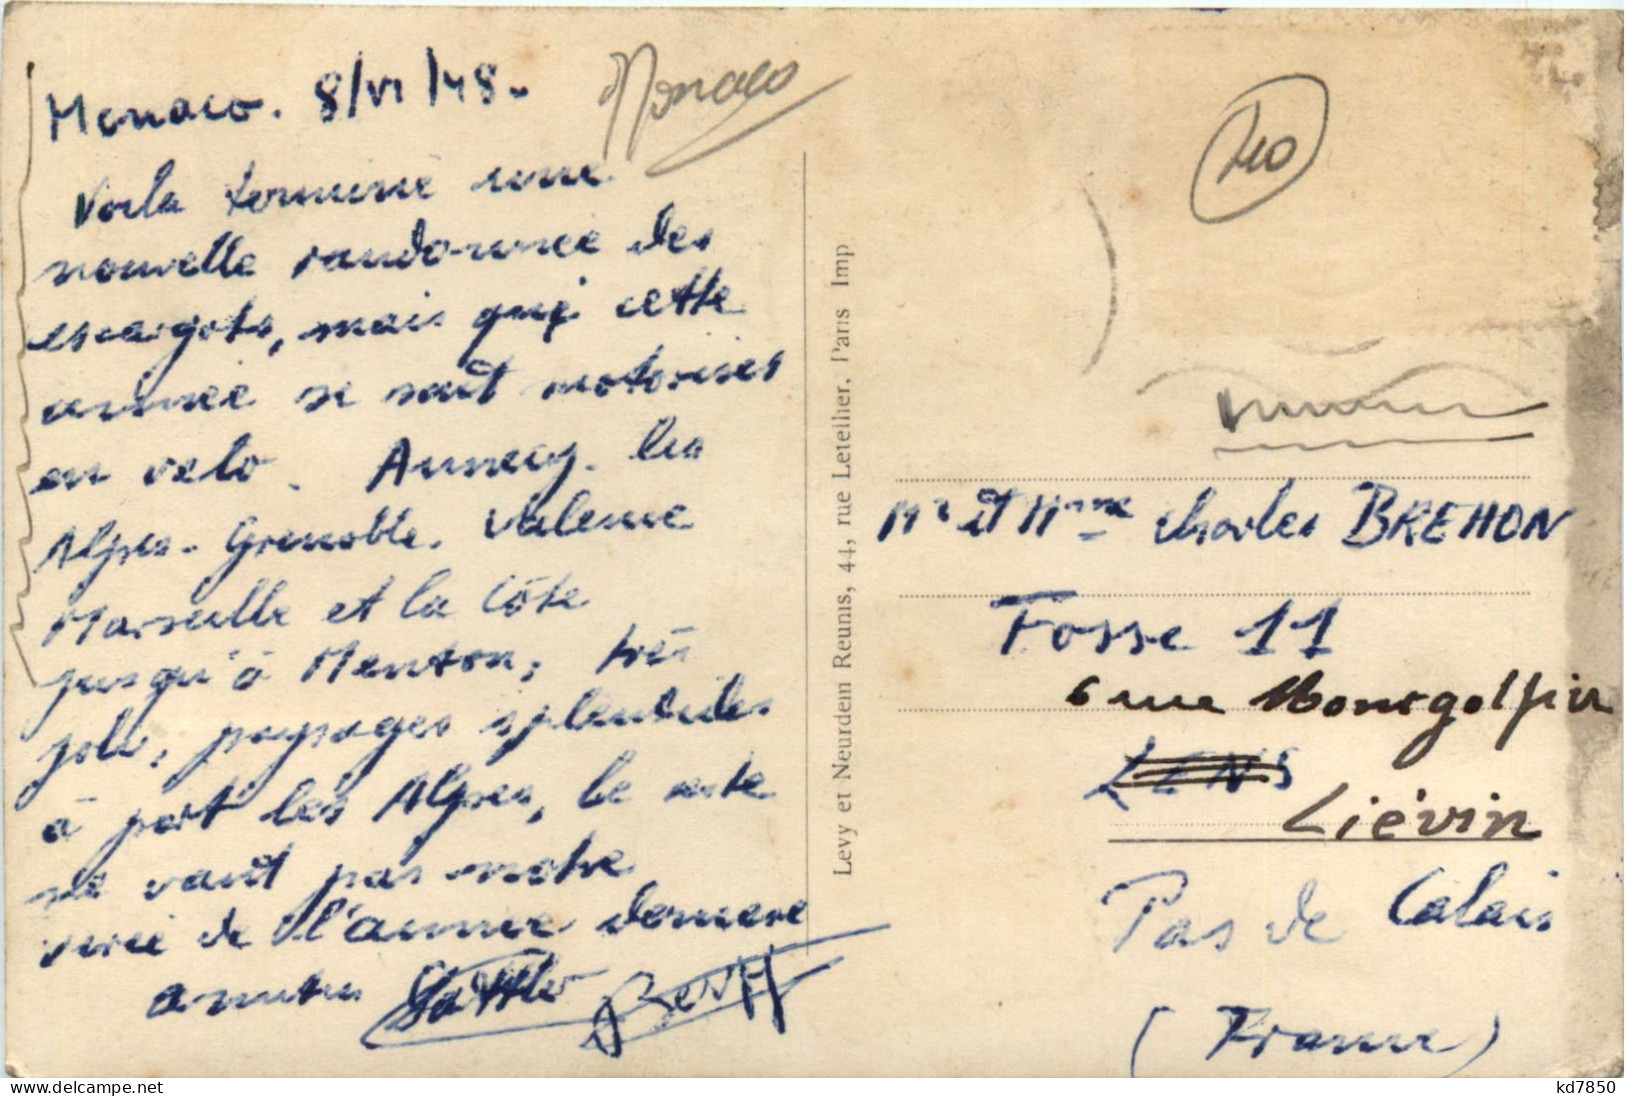 Monaco. 8/VI/48.
Monaco
Voila terminé une
nouvelle randonnée des
escargots, mais qui cette
année se sont motorisés
en velo. Annecy. les
Alpes. Grenoble. Valence
Marseille et la Côte
jusqu'à Menton, très
joli, paysages splendides
à part les Alpes, le reste
ne vaut pas notre
virée de l'année derniere
amities
40
Levy et Neurdein Reunis, 44, rue Letellier, Paris Imp
Mr et Mme Charles BREHON
Fosse 11
6 rue Montgolfier
LENS
Liévin
Pas de Calais
(France)
kd7850